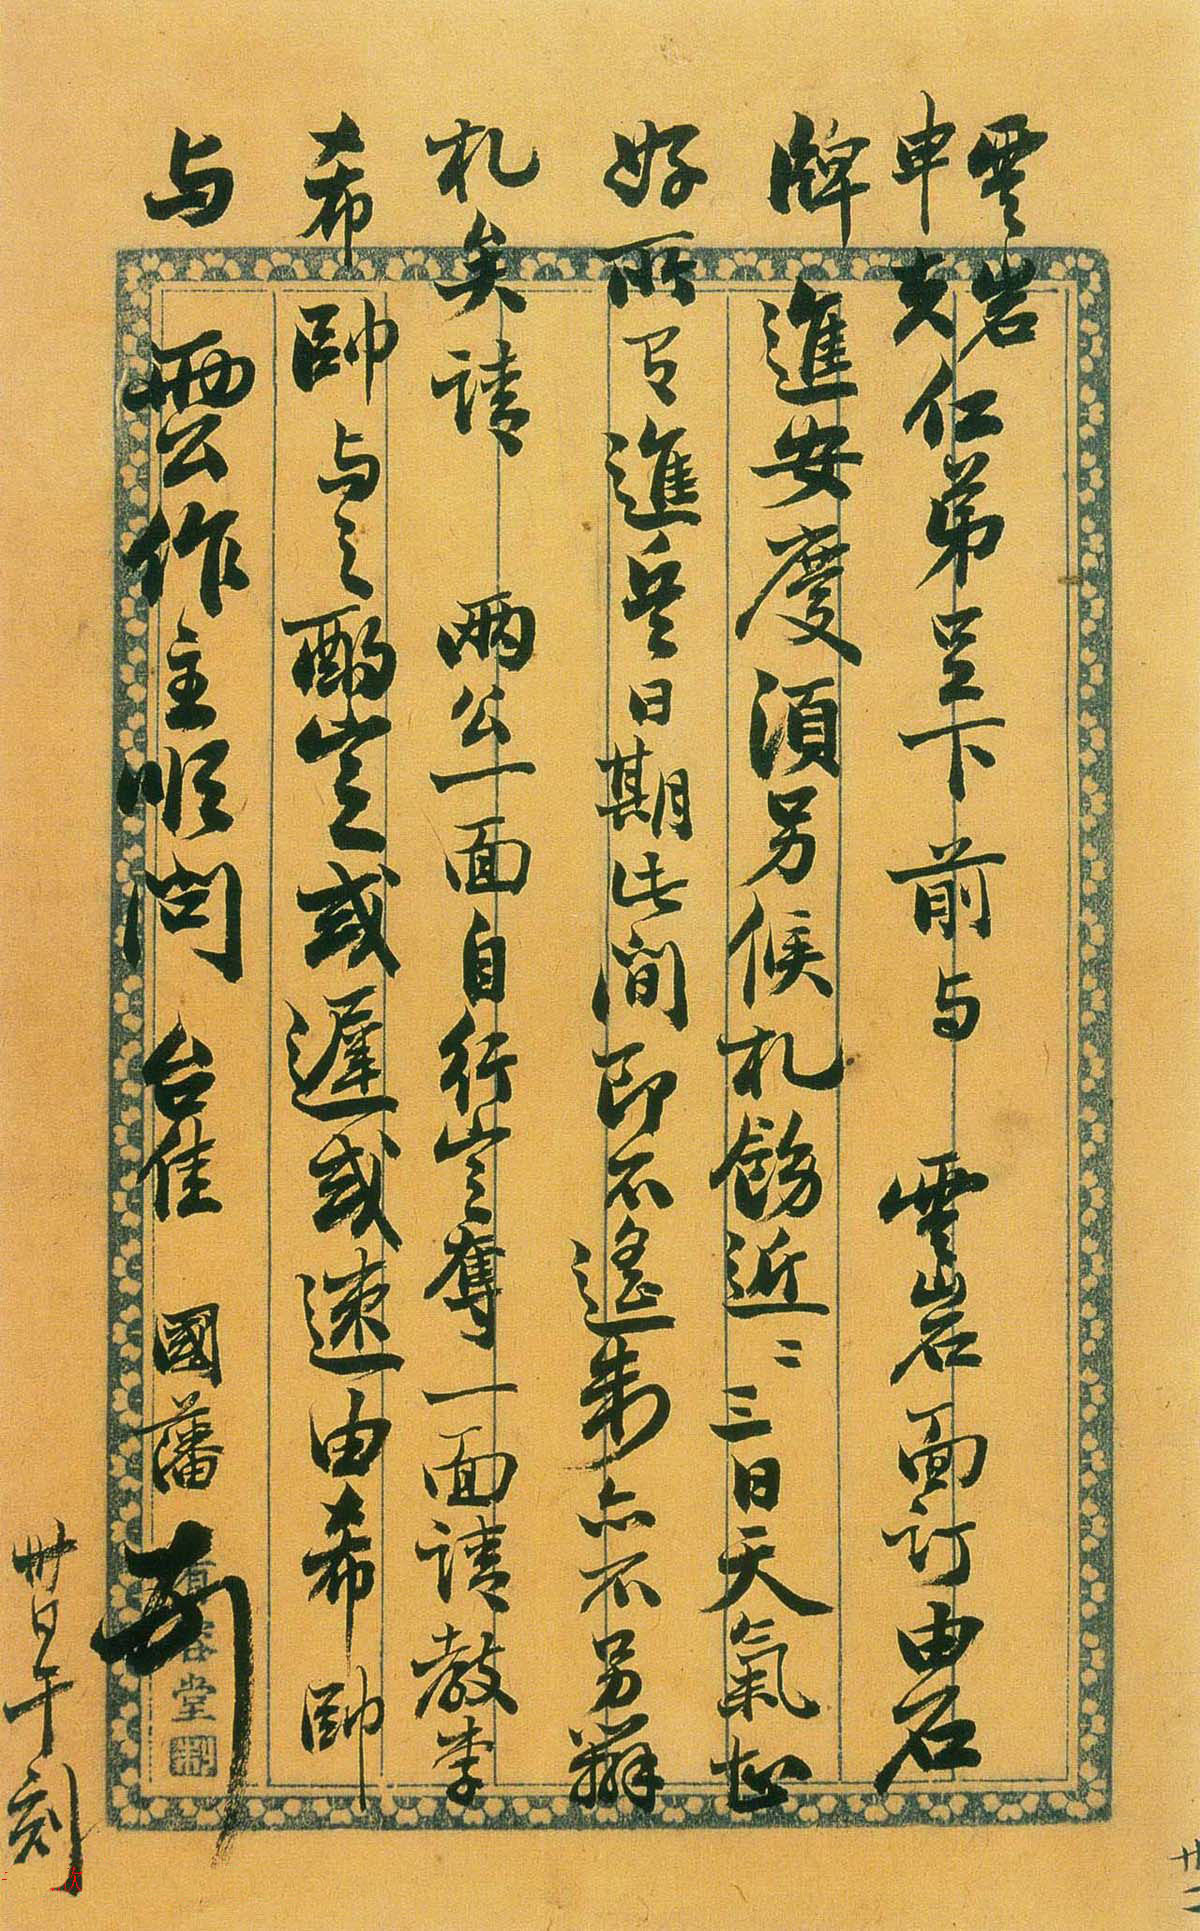 雲岩
申夫仁弟足下前与　雲岩面訂由石
牌進安慶須另候札飭近二三日天氣甚
好所有進兵日期此間即不遙制亦不另辦
札矣請　兩公一面自行定奪一面請教李
希帥与之酌定或遲或速由希帥
与雲公作主順問　台佳　國藩
卅日午刻
堂製